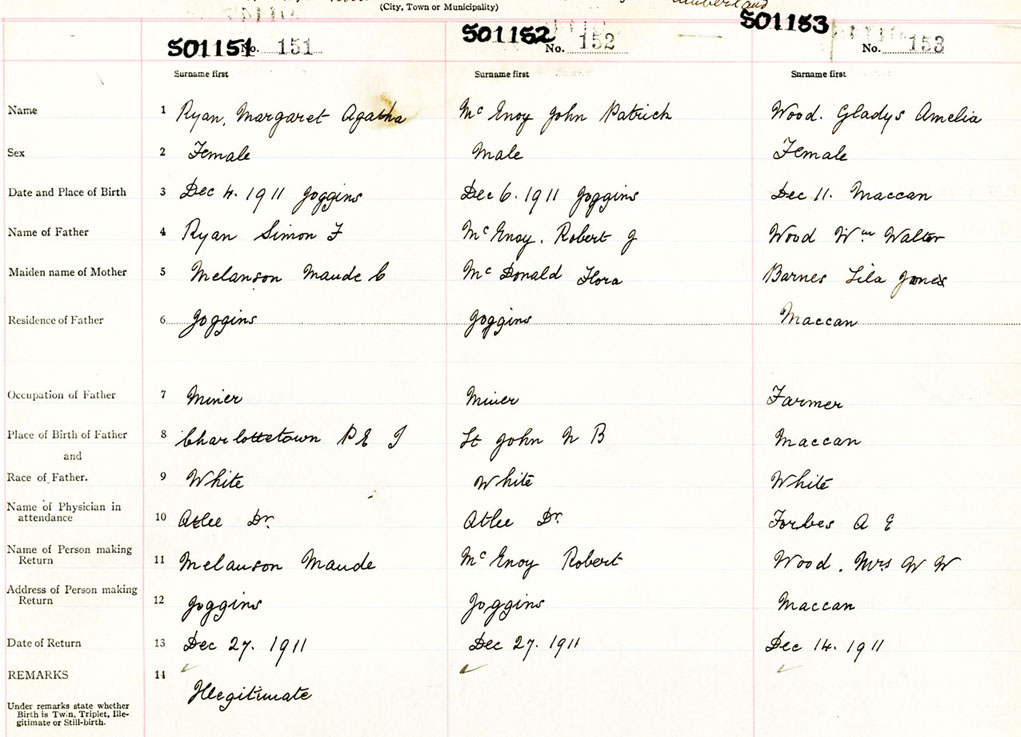 (City, Town or Municipality)
S01151 No. 151 S01152 No. 152 S01153 No. 153
Surname first Surname first Surname first
Name 1 Ryan, Margaret Agatha Mc Enoy John Patrick Wood. Gladys Amelia
Sex 2 Female Male Female
Date and Place of Birth 3 Dec 4. 1911 Joggins Dec 6. 1911 Joggins Dec 11. Maccan
Name of Father 4 Ryan Simon F Mc Enoy. Robert J Wood Wm Walter
Maiden name of Mother 5 Melanson Maude C Mc Donald Flora Barnes Lila Jones
Residence of Father 6 Joggins Joggins Maccan
Occupation of Father 7 Miner Miner Farmer
Place of Birth of Father 8 Charlottetown P E I St John N B Maccan
and
Race of Father. 9 White White White
Name of Physician in
attendance 10 Atlee Dr. Atlee Dr. Forbes A E
Name of Person making
Return 11 Melanson Maude Mc Enoy Robert Wood. Mrs W W
Address of Person making
Return 12 Joggins Joggins Maccan
Date of Return 13 Dec 27. 1911 Dec 27. 1911 Dec 14. 1911
REMARKS 14 Illegitimate
Under remarks state whether
Birth is Twin, Triplet, Ille-
gitimate or Still-birth.